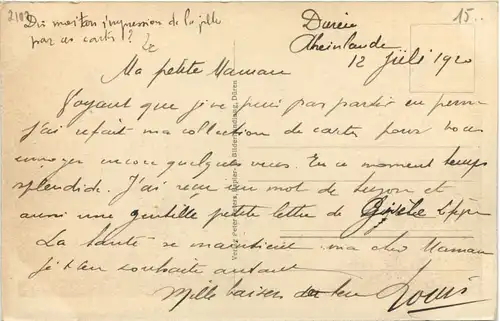 2102
Dis moi ton impression de la ville
par ces cartes ?
15
Düren
Rheinlande
12 Juli 1920
Ma petite Maman
Voyant que je ne puis pas partir en perm
j'ai refait ma collection de cartes pour vous
envoyer encore quelques vues. En ce moment temps
splendide. J'ai reçu un mot de Suzon et
aussi une gentille petite lettre de Gisèle
La santé se maintient ma chère Maman
je t'en souhaite autant
Mille baisers de ton Louis
Verlag Peter Papier- & Bilderhandlung, Düren